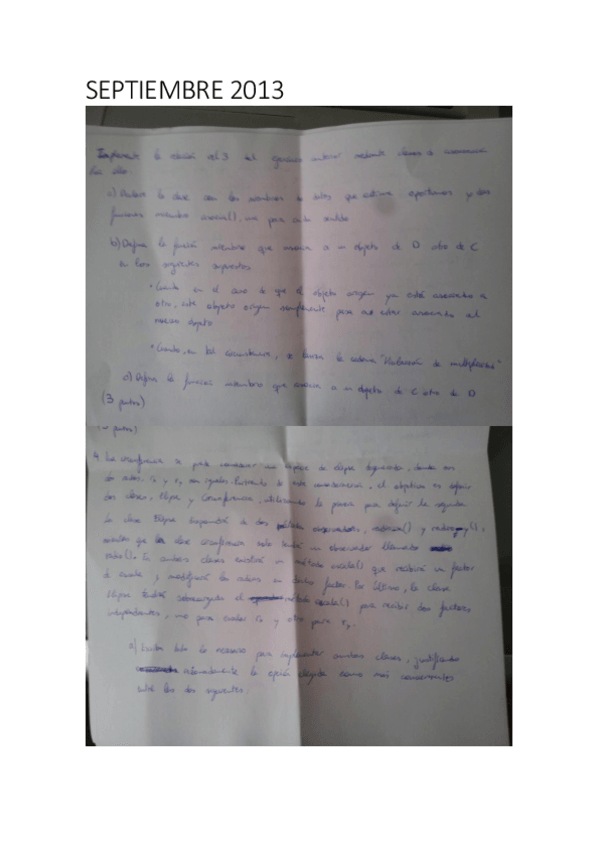 SEPTIEMBRE 2013
Implemente la relación rel3 del ejercicio anterior mediante clases de
Para ello:
a) la clase con los miembros de datos que estime oportunos y dos
funciones miembro asocia(), una para cada sentido
b) Defina la función miembro que asocia a un objeto de D otro de C
en los siguientes supuestos
• en el caso de que el objeto origen ya esté asociado a
otro, este objeto origen simplemente pasa a estar asociado al
nuevo objeto
• en tal circunstancia, se lanza la cadena "Violación de multiplicidad"
c) Defina la función miembro que asocia a un objeto de C otro de D
(3 puntos)
puntos)
4. La circunferencia se puede considerar una especie de elipse degenerada, donde sus
dos radios, rx y ry son iguales. Partiendo de esta consideración, el objetivo es definir
dos clases, Elipse y Circunferencia, utilizando la primera para definir la segunda
La clase Elipse dispondrá de dos observadores, y
mientras que la clase circunferencia solo tendrá un observador llamado
radio(). En ambas clases existirá un método escala() que recibirá un factor
de escala y modificará los radios en dicho factor. Por último, la clase
Elipse tendrá sobrecargado el método escala() para recibir dos factores
independientes, uno para escalar rx y otro para ry.
a) Escriba todo lo necesario para implementar ambas clases, justificando
la opción elegida como más conveniente
entre las dos siguientes.